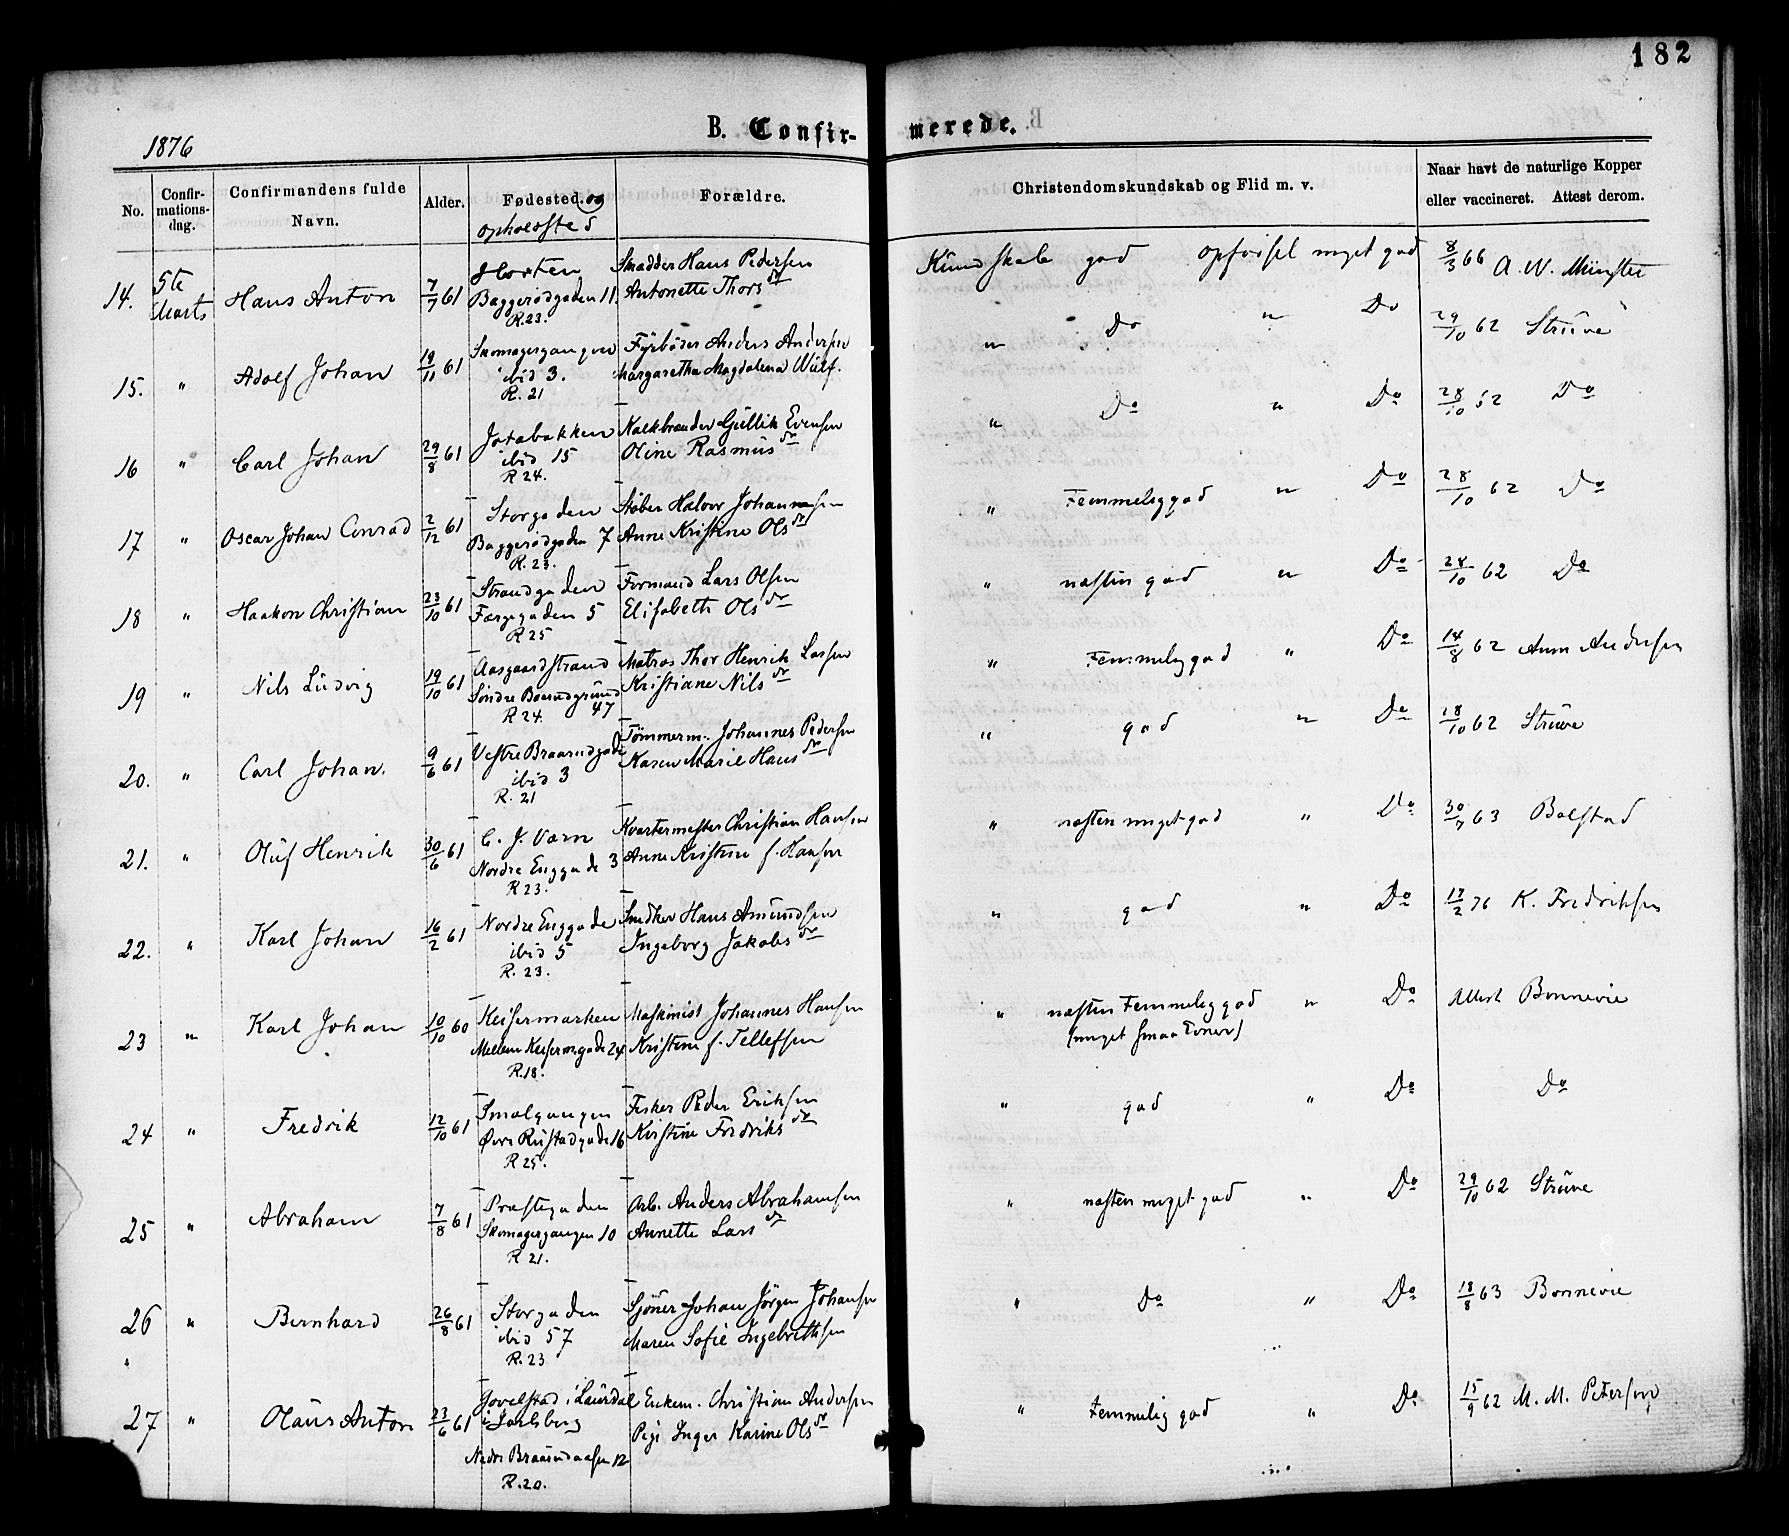 182
1876
B. Confir-
merede.
No.
Confir-
mations-
dag.
Confirmandens fulde
Navn.
Alder.
Fødested. og
opholdsted
Forældre.
Christendomskundskab og Flid m. v.
Naar havt de naturlige Kopper
eller vaccineret. Attest derom.
14. 5te Marts Hans Anton 7/7 61 Horten Smedder Hans Pedersen Kundskab god opførsel meget god 8/3 66 A. W. Münster
Baggerødgaden 11. Antonette Thorsdr
R.23.
15. " Adolf Johan 19/11 61 Skomagergangen Fyrbøder Anders Andersen " Do " Do 29/10 62 Strüve
ibid 3. Margaretha Magdalena Wulf.
R. 21
16 " Carl Johan 29/8 61 Jatabakken Kalkbrænder Gullik Evensen " Do " Do 28/10 52 Do
ibid 15 Oline Rasmusdr
R 24.
17 " Oscar Johan Conrad 2/12 61 Storgaden Støber Halvor Johannesen " Temmelig god " Do 28/10 62 Do
Baggerødgaden 7 Anne Kristine Olsdr
R. 23.
18 " Haakon Christian 23/10 61 Strandgaden Formand Lars Olsen " næsten god " Do 24/10 62 Do
Færgegaden 5 Elisabeth Olsdr
R 25
19 " Nils Ludvig 19/10 61 Aasgaardstrand Matros Thor Henrik Larsen " Temmelig god " Do 14/8 62 Anna Andersen
Søndre Braarudgrund 47 Kristiane Nilsdr
R 24.
20. " Carl Johan. 9/6 61 Vestre Braarudgade Tømmerm. Johannes Pedersen " god " Do 18/10 62 Strüve
ibid 3 Karen Marie Hansdr
R. 21
21. " Oluf Henrik 30/6 61 C. J. Værn Kvartermester Christian Hansen " næsten meget god " Do 30/7 63 Bolstad
Nordre Enggade 3 Anne Kristine f. Hansen
R 23.
22. " Karl Johan 16/2 61 Nordre Enggade Snedker Hans Amundsen " god " Do 12/2 76 K. Fredriksen
ibid 5 Ingeborg Jakobsdr
R. 23.
23 " Karl Johan 10/10 60 Keisermarken Maskinist Johannes Hansen " næsten Temmelig god " Do Attest Bonnevie
Mellem Keisermgade 24 Kristine f. Tellefsen (meget smaa Evner)
R.18.
24 " Fredrik 12/10 61 Smalgangen Fisker Peder Eriksen " god " Do Do
Øvre Rustadgade 16 Kristine Fredriksdr
R 25.
25 " Abraham 7/8 61 Præstegaden Arb. Anders Abrahamsen " næsten meget god " Do 29/10 62 Strüve
Skomagergangen 10 Annette Larsdr
R 21.
26 " Bernhard 26/8 61 Storgaden Sjøner Johan Jörgen Johansen " Do " Do 18/8 63 Bonnevie
ibid 57 Maren Sofie Ingebrethsen
R. 23
27 " Olaus Anton 23/6 61 Jovelstad i Laurdal Enkem. Christian Andersen " Temmelig god " Do 15/9 62 M. M. Petersen
i Jarlsberg Pige Inger Karine Olsdr
Nedre Braarudaasen 12
R.20.